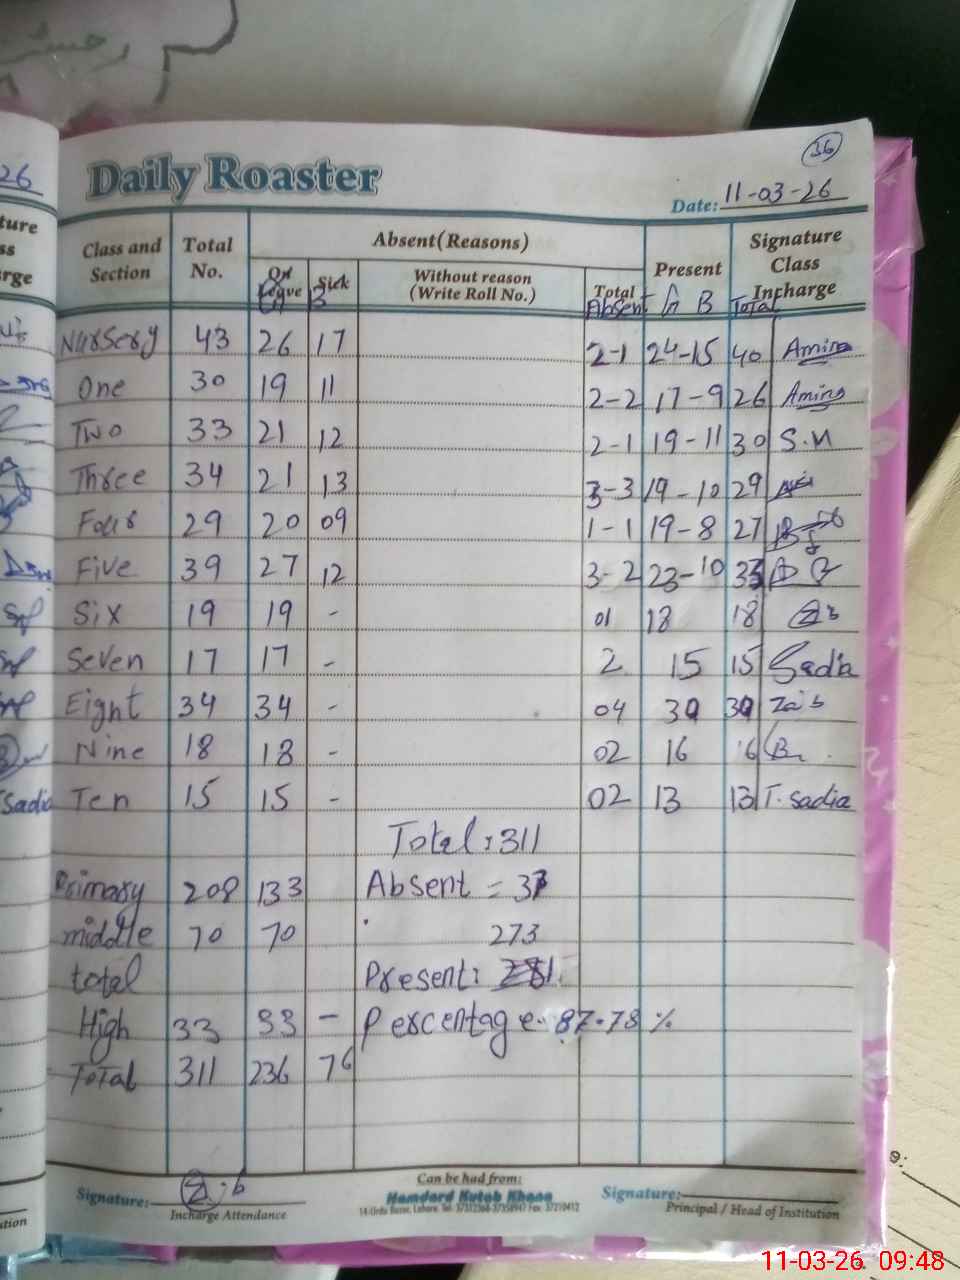 36
Daily Roaster
Date: 11-03-26
Class and Section Total No. Absent (Reasons) Present Signature Class Incharge
On Leave Sick Without reason (Write Roll No.) Total
B Absent G B Total
Nursery 43 26 17 2-1 24-15 40 Amina
One 30 19 11 2-2 17-9 26 Amina
Two 33 21 12 2-1 19-11 30 S.M
Three 34 21 13 3-3 19-10 29
Four 29 20 09 1-1 19-8 27
Five 39 27 12 3-2 23-10 33
Six 19 19 - 01 18 18
Seven 17 17 - 2 15 15 Sadia
Eight 34 34 - 04 30 30 Zaib
Nine 18 18 - 02 16 16
Ten 15 15 - 02 13 13 T. sadia
Total: 311
Primary 208 133 Absent = 37
middle 70 70 273
total Present:
High 33 33 - Percentage. 87.78 %
Total 311 236 76
Signature:
Incharge Attendance
Can be had from:
Hamdard Kutab Khana
14-Urdu Bazar, Lahore. Tel: 37312368-37358947 Fax: 37210412
Signature:
Principal / Head of Institution
26
Sadia
11-03-26 09:48